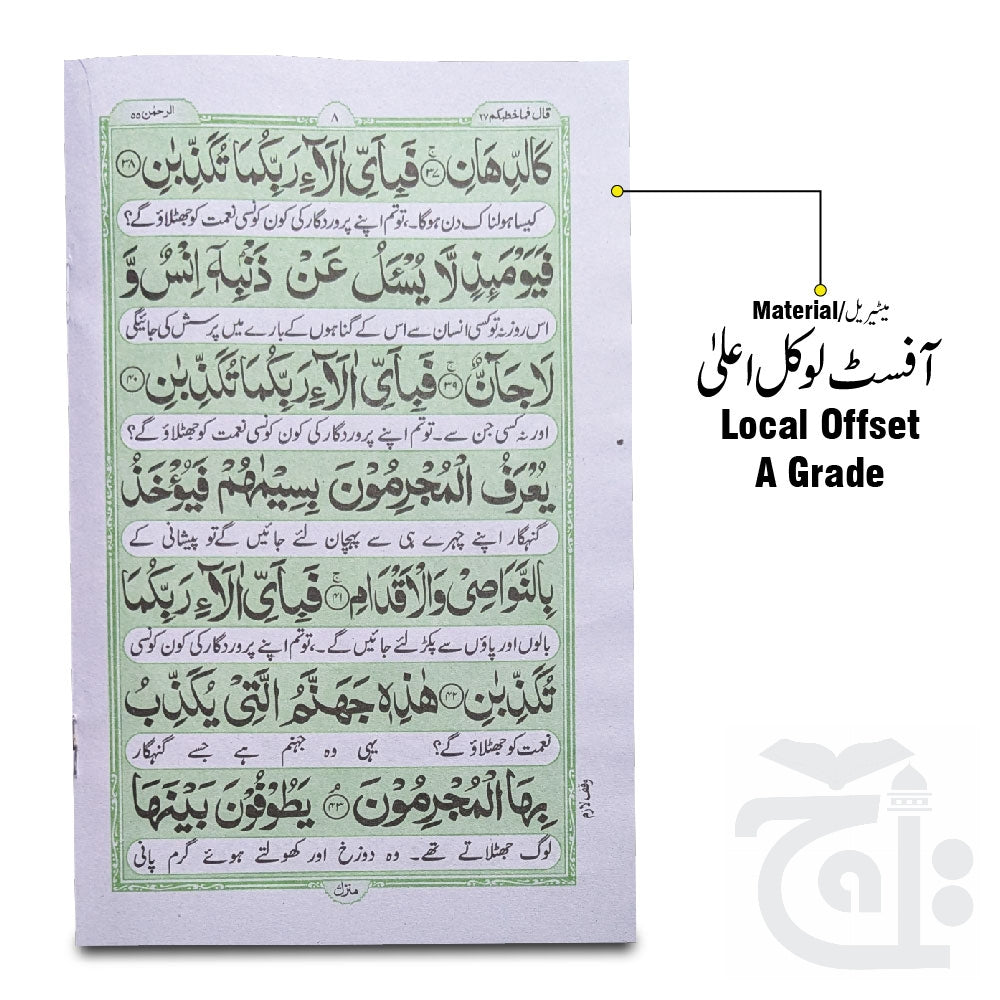 قال فما خطبكم ۲۷
۸
الرحمٰن ۵۵
كَالدِّهَانِ ۚ﴿۳۷﴾ فَبِاَيِّ اٰلَآءِ رَبِّكُمَا تُكَذِّبٰنِ ﴿۳۸﴾
کیسا ہولناک دن ہوگا۔، تو تم اپنے پروردگار کی کون کونسی نعمت کو جھٹلاؤ گے؟
فَيَوْمَئِذٍ لَّا يُسْـَٔلُ عَنْ ذَنْۢبِهٖٓ اِنْسٌ وَّ
اس روز نہ تو کسی انسان سے اس کے گناہوں کے بارے میں پرسش کی جائیگی
لَا جَآنٌّ ۚ﴿۳۹﴾ فَبِاَيِّ اٰلَآءِ رَبِّكُمَا تُكَذِّبٰنِ ﴿۴۰﴾
اور نہ کسی جن سے۔ تو تم اپنے پروردگار کی کون کونسی نعمت کو جھٹلاؤ گے؟
يُعْرَفُ الْمُجْرِمُوْنَ بِسِيْمٰهُمْ فَيُؤْخَذُ
گنہگار اپنے چہرے ہی سے پہچان لئے جائیں گے تو پیشانی کے
بِالنَّوَاصِيْ وَالْاَقْدَامِ ۚ﴿۴۱﴾ فَبِاَيِّ اٰلَآءِ رَبِّكُمَا
بالوں اور پاؤں سے پکڑ لئے جائیں گے۔، تو تم اپنے پروردگار کی کون کونسی
تُكَذِّبٰنِ ﴿۴۲﴾ هٰذِهٖ جَهَنَّمُ الَّتِيْ يُكَذِّبُ
نعمت کو جھٹلاؤ گے؟ یہی وہ جہنم ہے جسے گنہگار
بِهَا الْمُجْرِمُوْنَ ۘ﴿۴۳﴾ يَطُوْفُوْنَ بَيْنَهَا
وقف لازم
لوگ جھٹلاتے تھے۔ وہ دوزخ اور کھولتے ہوئے گرم پانی
منزل
Material/میٹیریل
آفسٹ لوکل اعلیٰ
Local Offset
A Grade